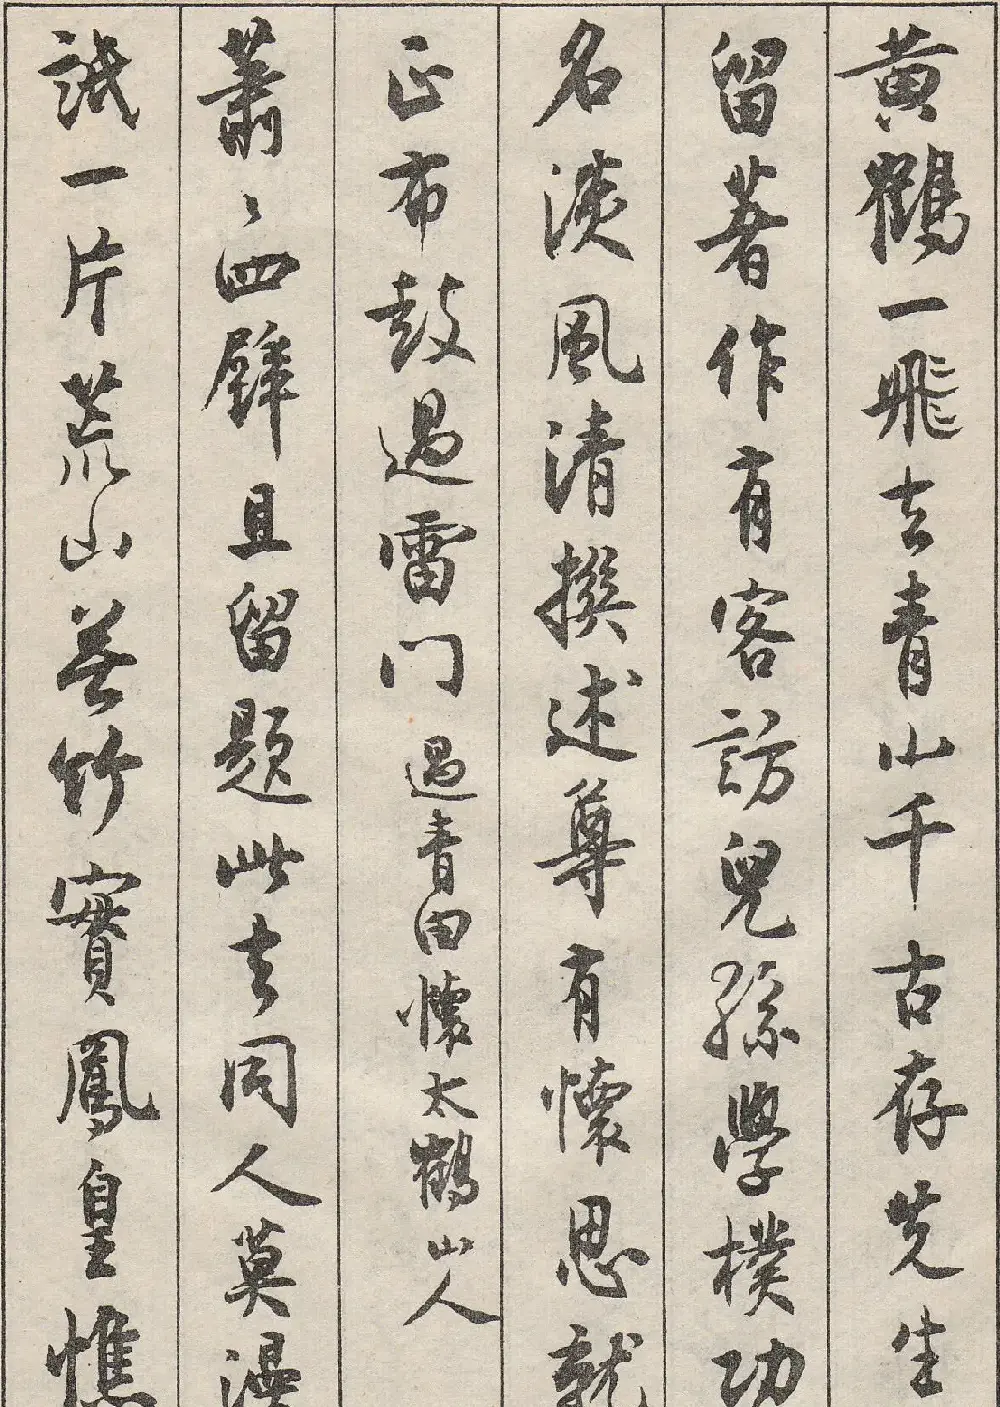 黄鶴一飛去青山千古存先生
留著作有客訪兒孫學樸功
名淡風清撰述尊有懷思就
正布鼓過雷门 過青田懷太鶴山人
蕭〻四壁且留題此去同人莫漫
詆一片荒山無竹實鳳皇憔